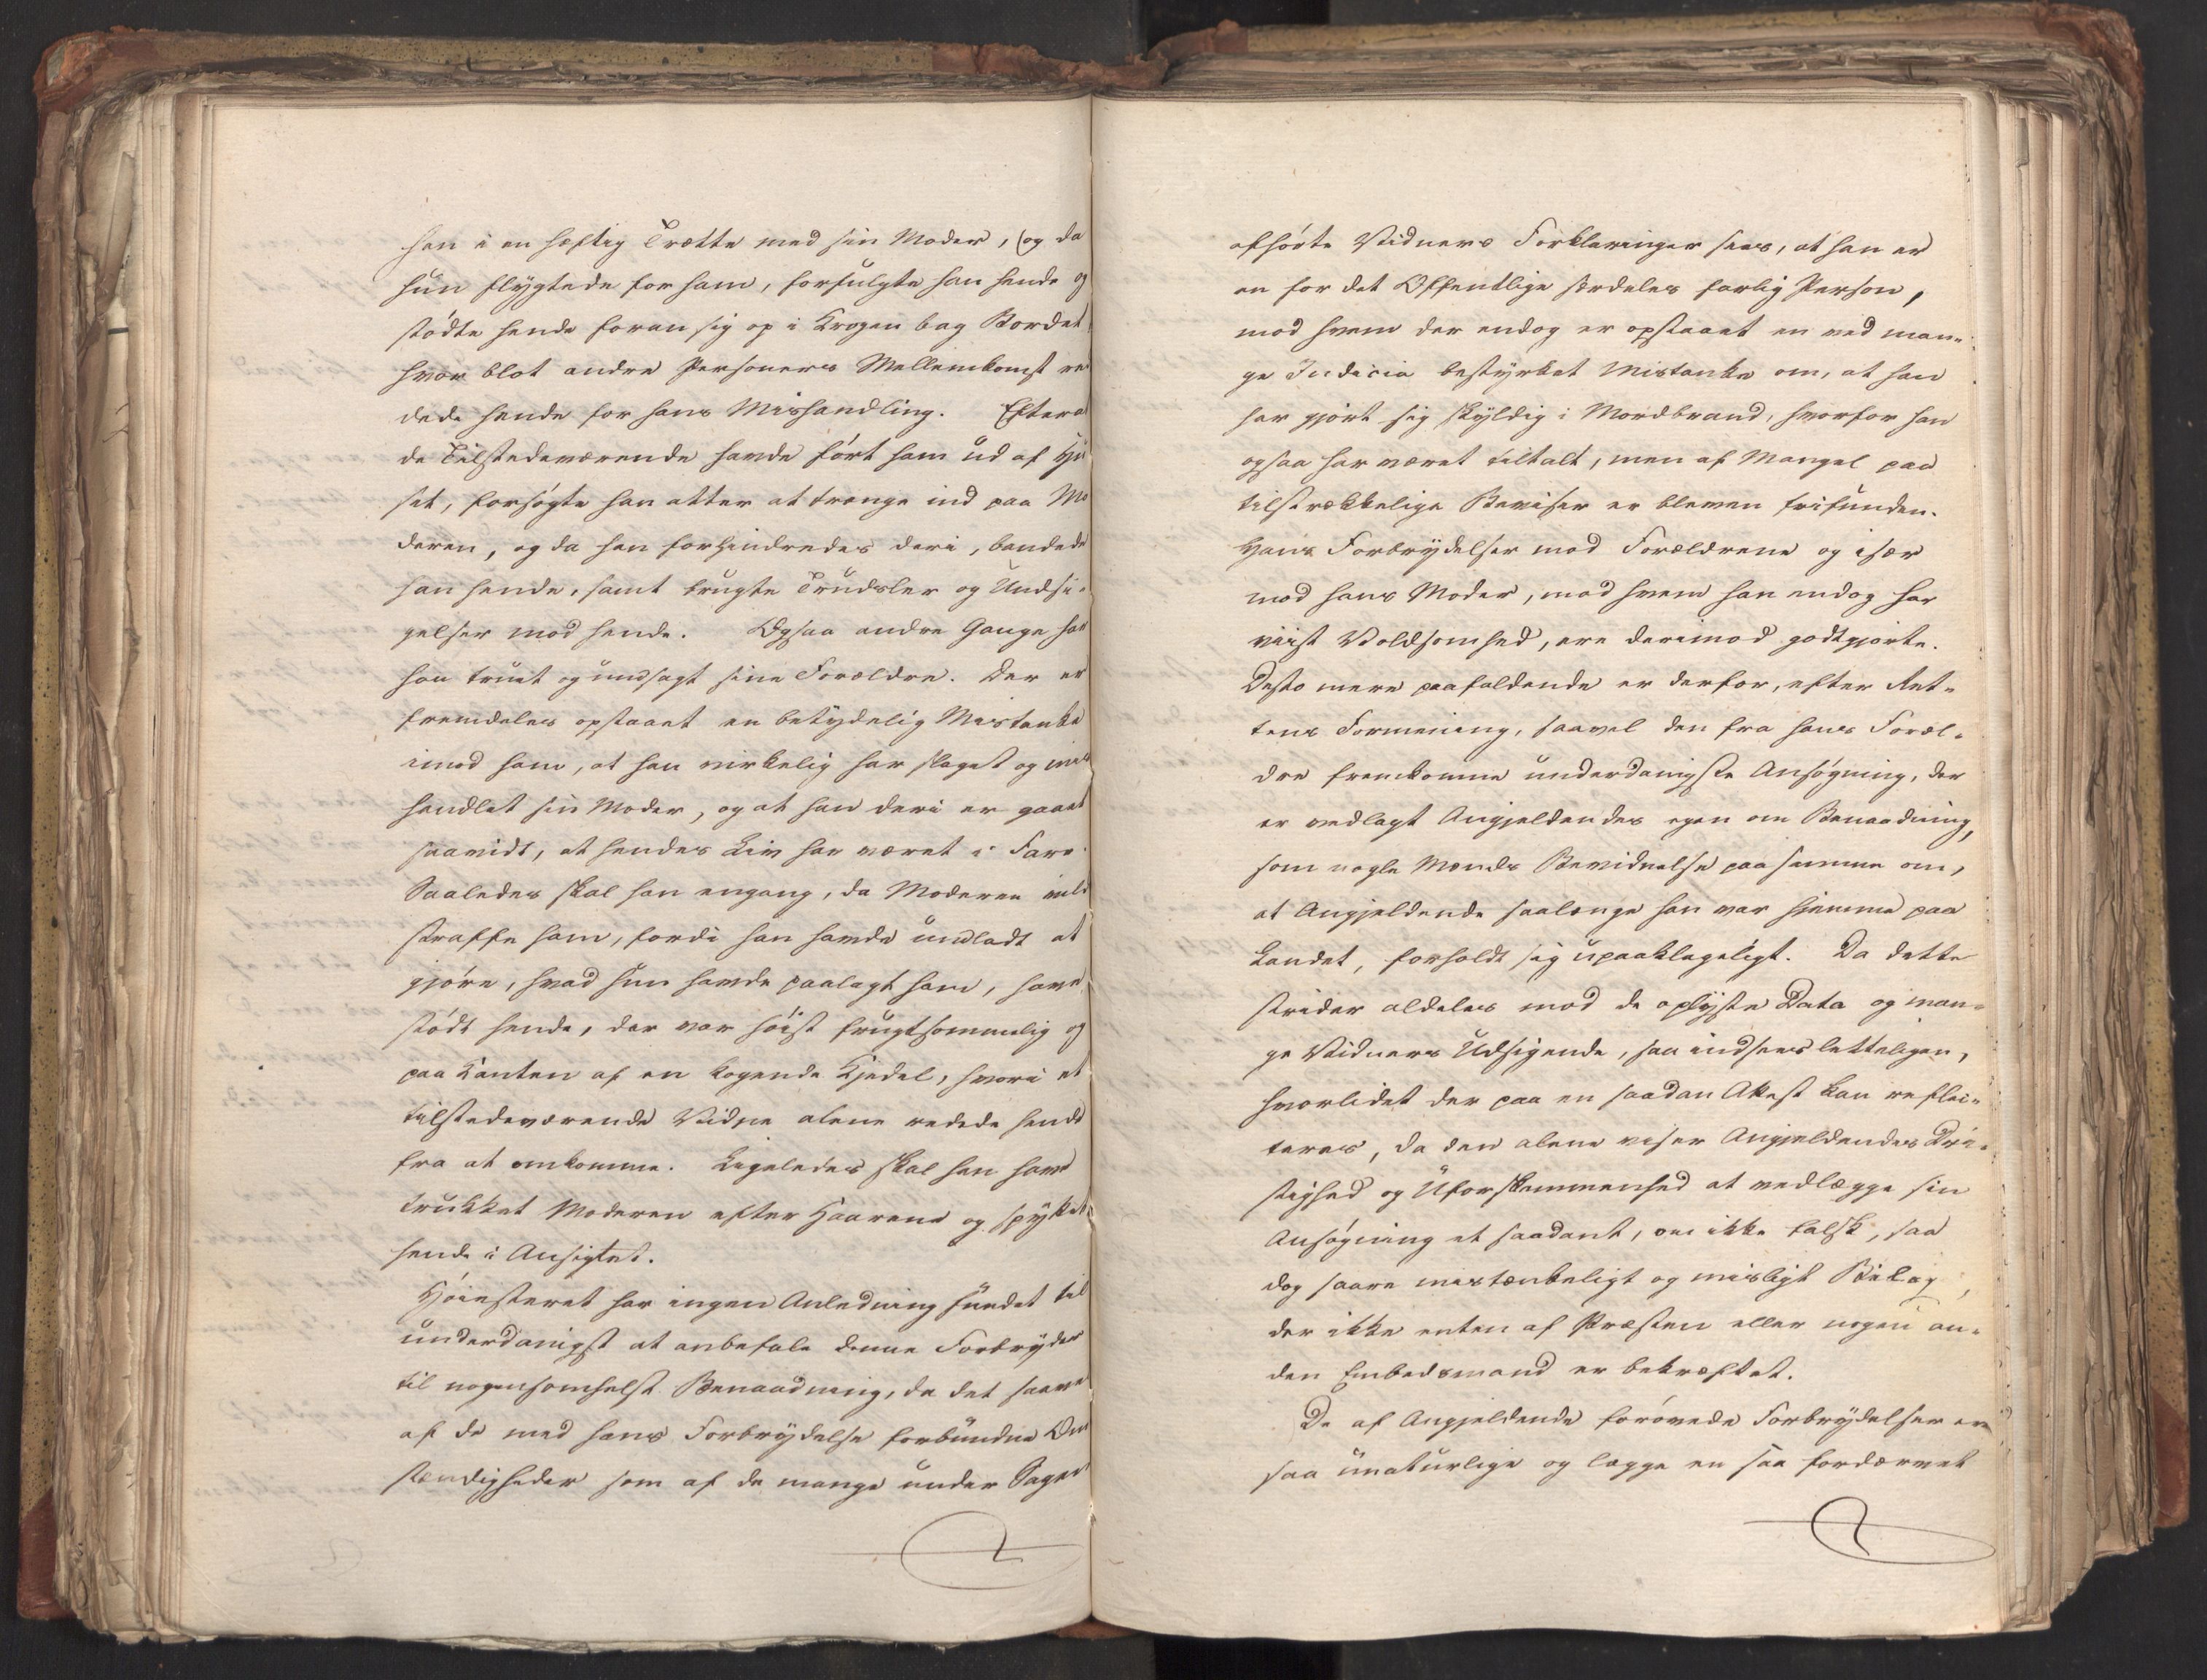 han i en hæftig Trætte med sin Moder, (og da
hun flygtede for ham, forfulgte han hende og
stødte hende foran sig op i Krogen bag Bordet
hvor blot andre Personers Mellemkomst red
dede hende for hans Mishandling. Efterat
de Tilstedeværende havde ført ham ud af Hu
set, forsøgte han atter at trænge ind paa Mo
deren, og da han forhindredes deri, bandede
han hende, samt brugte Trudsler og Undsi-
gelser mod hende. Ogsaa andre Gange har
han truet og undsagt sine Forældre. Der er
fremdeles opstaaet en betydelig Mistanke
imod ham, at han virkelig har slaget og mis
handlet sin Moder, og at han deri er gaaet
saavidt, at hendes Liv har været i Fare.
Saaledes skal han engang, da Moderen vilde
straffe ham, fordi han havde undladt at
gjøre, hvad hun havde paalagt ham, have
stødt hende, der var høist frugtsommelig og
paa Kanten af en kogende Kjedel, hvori et
tilstedeværende Vidne alene redede hende
fra at omkomme. Ligeledes skal han have
trukket Moderen efter Haarene og spyttet
hende i Ansigtet.
Høiesteret har ingen Anledning fundet til
underdanigst at anbefale denne Forbryder
til nogensomhelst Benaadning, da det saavel
af de med hans Forbrydelse forbundne Om
stændigheder som af de mange under Sagen
afhørte Vidners Forklaringer sees, at han er
en for det Offentlige særdeles farlig Person,
mod hvem der endog er opstaaet en ved man-
ge Indicia bestyrket Mistanke om, at han
har gjort sig skyldig i Mordbrand, hvorfor han
ogsaa har været tiltalt, men af Mangel paa
tilstrækkelige Beviser er bleven frifunden.
Hans Forbrydelser mod Forældrene og især
mod hans Moder, mod hvem han endog har
viist Voldsomhed, ere derimod godtgjorte.
Desto mere paafaldende er derfor, efter Ret-
tens Formening, saavel den fra hans Foræl-
dre fremkomne underdanigste Ansøgning, der
er vedlagt Angjeldendes egen om Benaadning,
som nogle Mænds Bevidnelse paa samme om,
at Angjeldende saalænge han var hjemme paa
Landet, forholdt sig upaaklageligt. Da dette
strider aldeles mod de oplyste Data og man-
ge Vidners Udsigende, saa indsees letteligen,
hvorlidet der paa en saadan Attest kan reflec-
teres, da den alene viser Angjeldendes Dri-
stighed og Uforskammenhed at vedlægge sin
Ansøgning et saadant, om ikke falsk, saa
dog saare mistænkeligt og misligt Bilag,
der ikke enten af Præsten eller nogen an-
den Embedsmand er bekræftet.
De af Angjeldende forøvede Forbrydelser ere
saa unaturlige og lægge en saa fordærvet